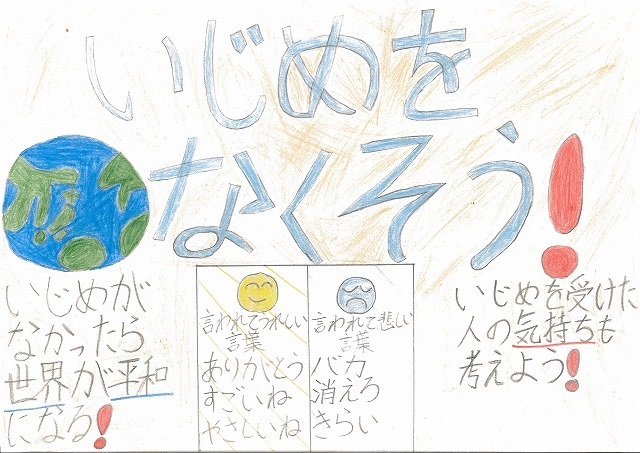 いじめを
なくそう!
いじめが
なかったら
世界が平和
になる!
言われてうれしい
言葉
ありがとう
すごいね
やさしいね
言われて悲しい
言葉
バカ
消えろ
きらい
いじめを受けた
人の気持ちも
考えよう!